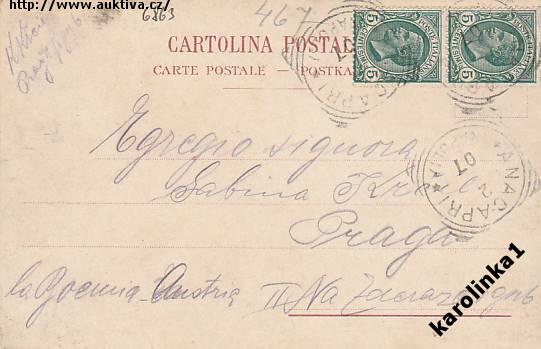 http://www.auktiva.cz/
6863
467
CARTOLINA POSTAL
CARTE POSTALE - POSTKA
5 5
5 5
ANACAPRI
07
2
Egregio signora
Sabina
Praga
la Boemia - Austria II Na
karolinka1